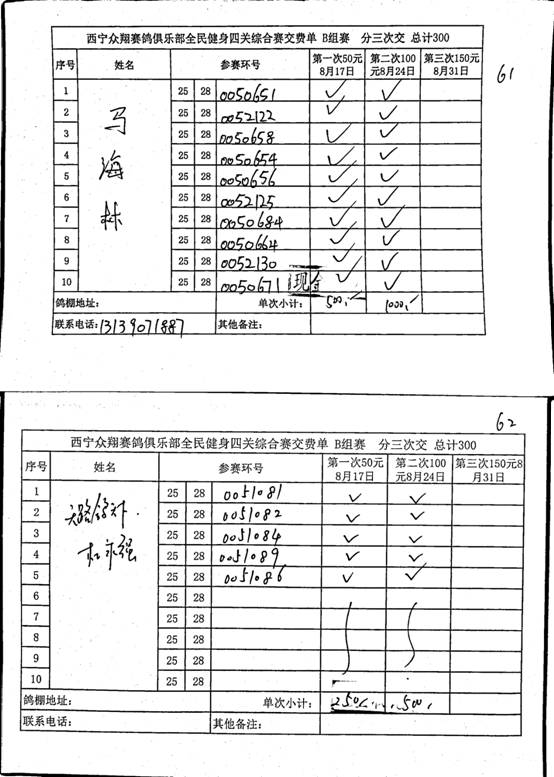 西宁众翔赛鸽俱乐部全民健身四关综合赛交费单 B组赛 分三次交 总计300
61
序号 姓名 参赛环号 第一次50元8月17日 第二次100元8月24日 第三次150元8月31日
马海林
1 25 28 0050651 ✓ ✓
2 25 28 0052122 ✓ ✓
3 25 28 0050658 ✓ ✓
4 25 28 0050654 ✓ ✓
5 25 28 0050656 ✓ ✓
6 25 28 0052125 ✓ ✓
7 25 28 0050684 ✓ ✓
8 25 28 0050664 ✓ ✓
9 25 28 0052130 ✓ ✓
10 25 28 0050671 现金 ✓ ✓
鸽棚地址: 单次小计: 500 1000
联系电话:13139071887 其他备注:
62
西宁众翔赛鸽俱乐部全民健身四关综合赛交费单 B组赛 分三次交 总计300
序号 姓名 参赛环号 第一次50元8月17日 第二次100元8月24日 第三次150元8月31日
1 25 28 0051081 ✓ ✓
2 25 28 0051082 ✓ ✓
3 25 28 0051084 ✓ ✓
4 25 28 0051089 ✓ ✓
5 25 28 0051086 ✓ ✓
6 25 28
7 25 28
8 25 28
9 25 28
10 25 28
鸽棚地址: 单次小计: 250 500
联系电话: 其他备注: